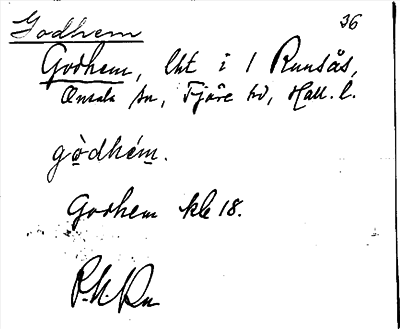 Godhem 36
Godhem, lht i 1 Runsås,
Onsala sn, Fjäre hd, Hall. l.
gòdhém.
Godhem kb 18.